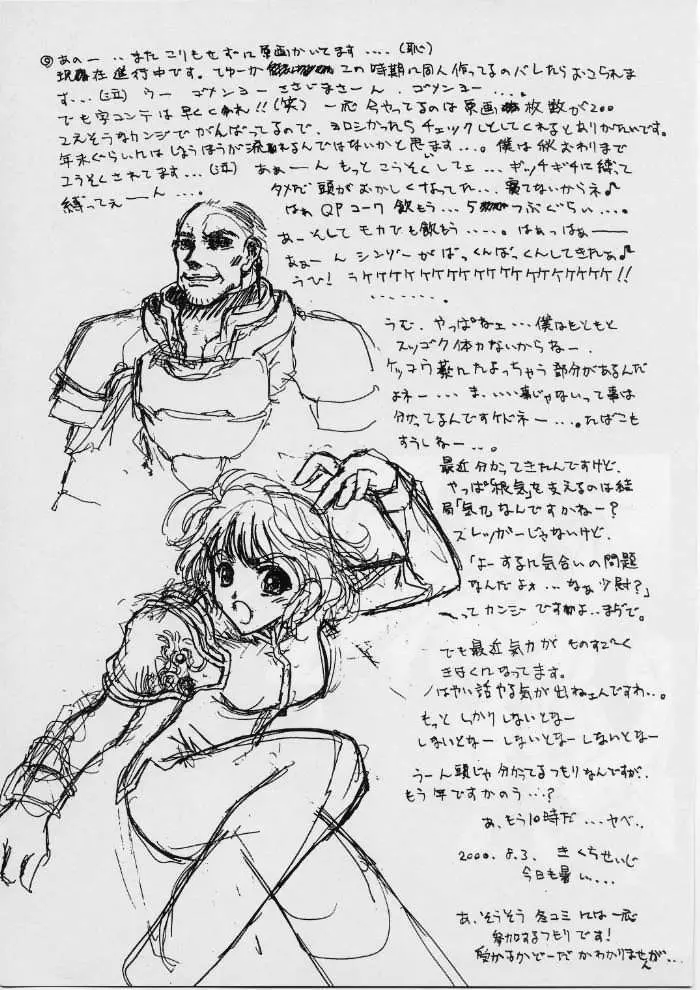 あのー ‥またこりもせずに原画かいてます....(恥)
現在進行中です。てゆーか この時期に同人作ってるのバレたらおこられま
す...(泣) うー ゴメンヨー ささじまさーん.ゴメンヨー...。
でも字コンテは早くくれ!!(笑) 一応今やってるのは原画枚数が200
こえそうなカンジでがんばってるので、ヨロシかったらチェックしとしてくれるとありがたいです。
年末ぐらいにはじょうほうが流れるんではないかと思ます...。僕は秋おわりまで
こうそくされてます...(泣) あぁーん もっとこうそくしてェ... ギッチギチに縛って
縛ってぇーん....。
タメだ頭がおかしくなってた...寝てないからネ♪
はぁ QPコーワ飲もう...5つぶぐらい....。
あーそしてモカでも飲もう.....。はぁっはぁー
あぁーん シンゾーがばっくんばっくんしてきたぁ♪
うひ! ラケケケケケケケケケケケケケケケケケケ!!
.......。
うむ、やっぱねェ...僕はもともと
スッゴク体力ないからねー.
ケッコウ薬にたよっちゃう部分があるんだ
よネー... ま、いい事じゃないって事は
分かってるんですケドネー....たばこも
すうしねー...。
最近分かってきたんですけど、
やっぱ「根気」を支えるのは結
局「気力」なんですかねー?
スレッガーじゃないけど、
「よーするに気合いの問題
なんだよォ...なぁ少尉?」
ってカンジですわよ..まぢで。
でも最近気力がものすごーく
きはくになってます。
はやい話やる気が出ねェんですわ..。
もっとしっかりしないとなー
しないとなー しないとなー しないとなー
うーん頭じゃ分かってるつもりなんですが、
もう年ですかのう...?
あ、もう10時だ...ヤベ..
2000.8.3. きくちせいじ
今日も暑い...
あ、そうそう 冬コミには一応
参加するつもりです!
受かるかどーだかわかりませんが...